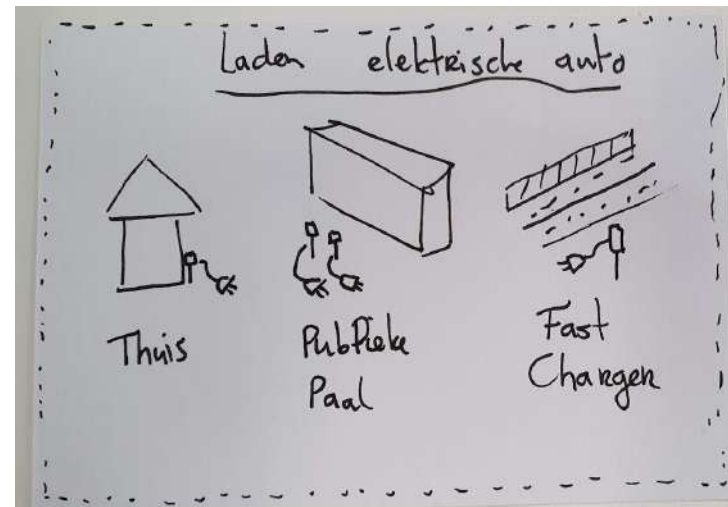 Laden elektrische auto
Thuis
Publieke
Paal
Fast
Charger